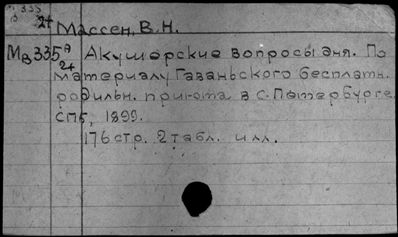 335
24 Массен, В. Н.
Мв 335а Акушерские вопросы дня. По
24 материалу Газаньского бесплатн.
родильн. приюта в С. Петербурге
СПб, 1899.
176 стр. 2 табл. илл.